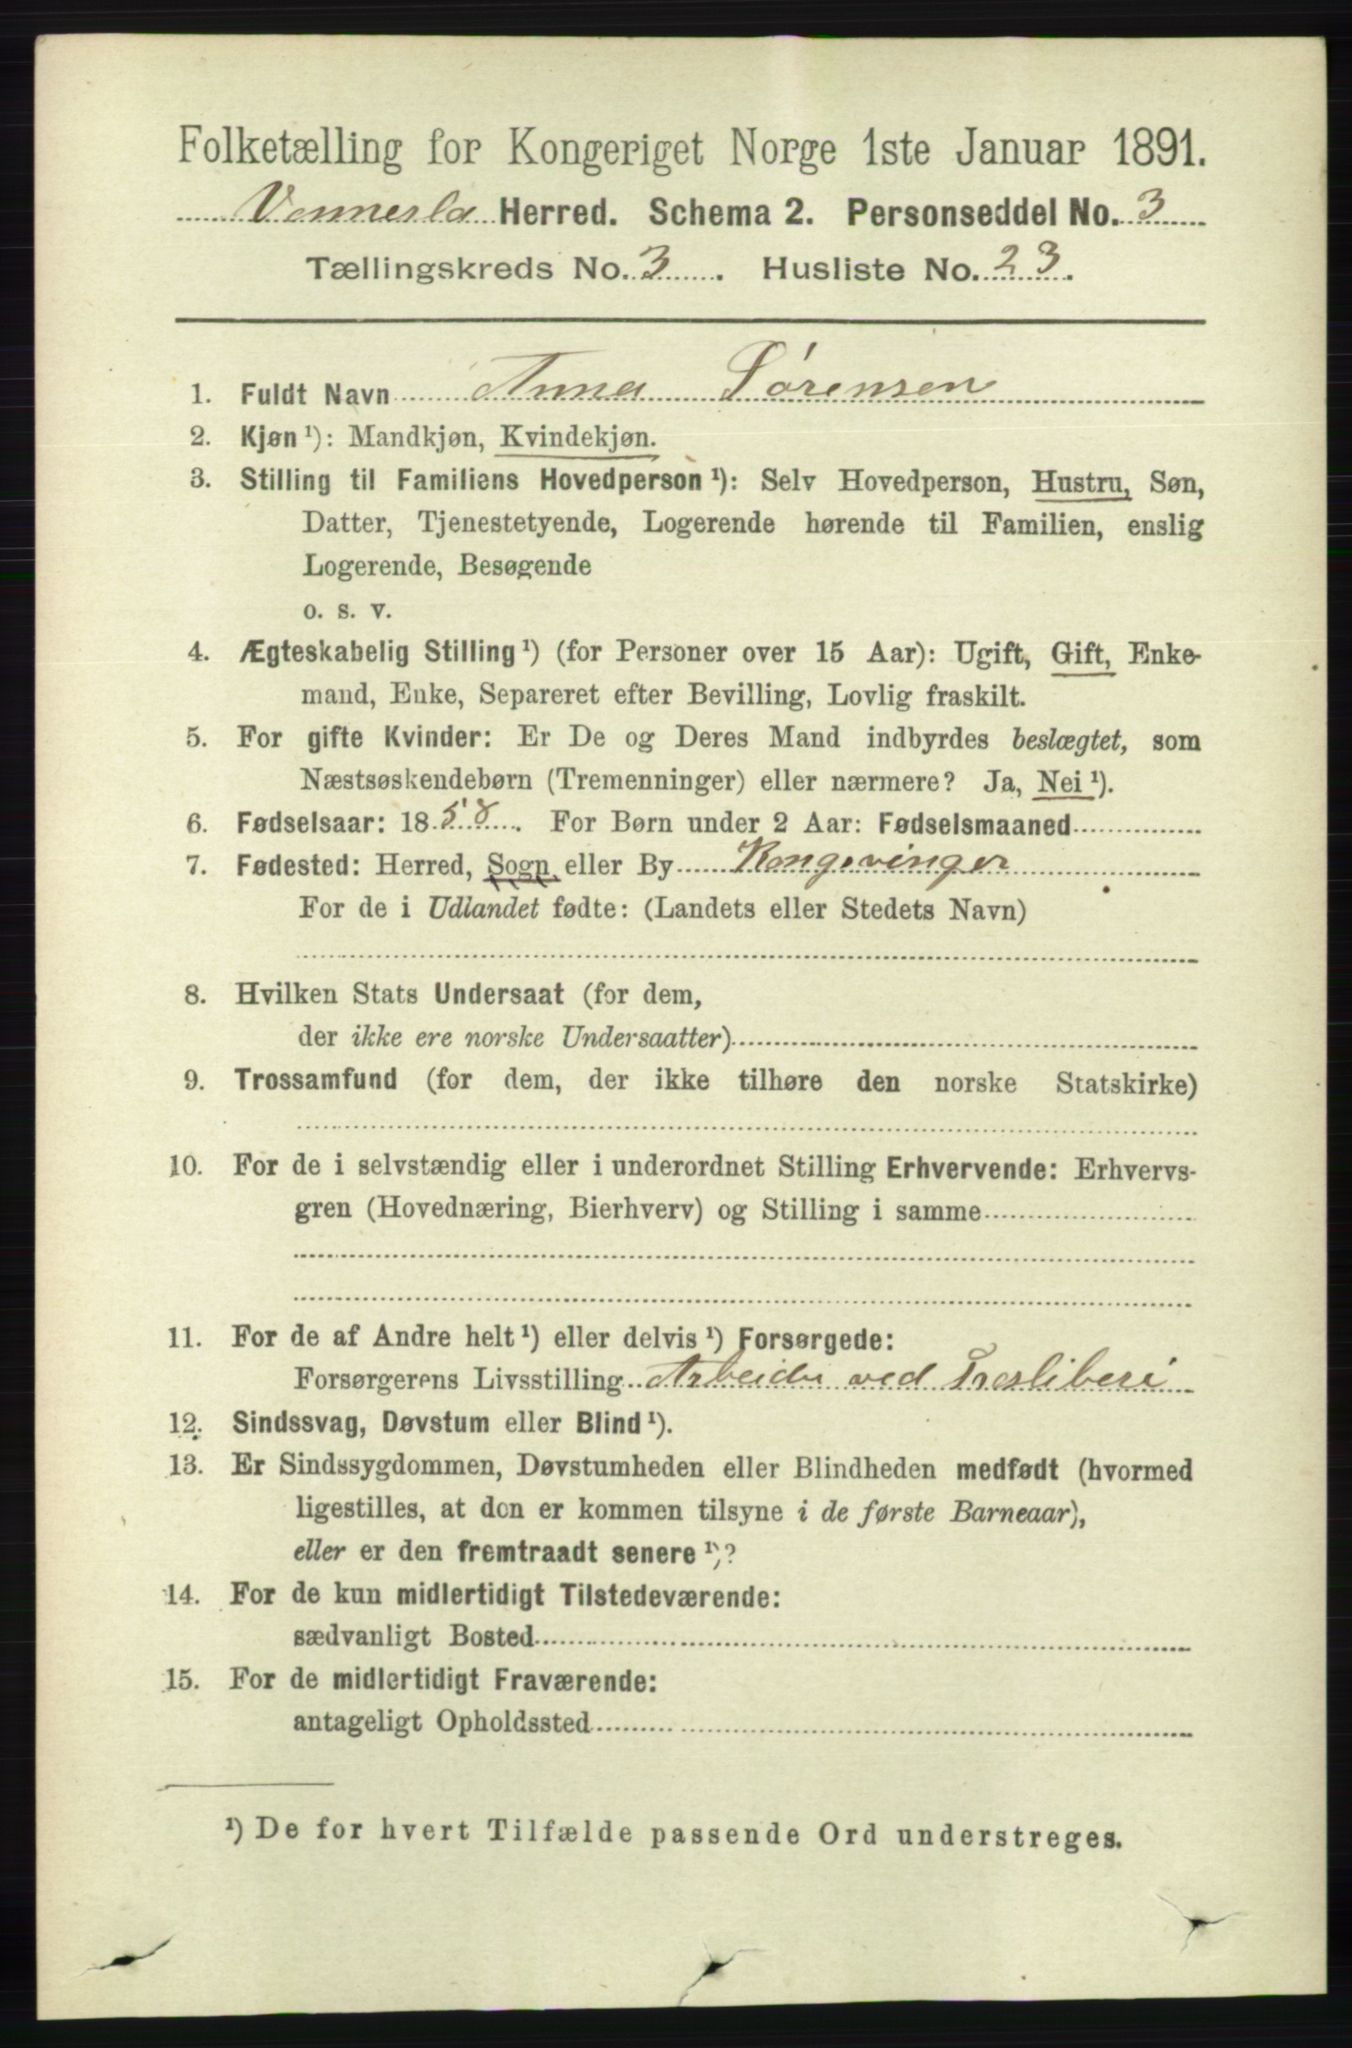 Folketælling for Kongeriget Norge 1ste Januar 1891.
Vennesla Herred. Schema 2. Personseddel No. 3
Tællingskreds No. 3. Husliste No. 23.
1. Fuldt Navn Anna Sørensen
2. Kjøn ¹): Mandkjøn, Kvindekjøn.
3. Stilling til Familiens Hovedperson ¹): Selv Hovedperson, Hustru, Søn,
Datter, Tjenestetyende, Logerende hørende til Familien, enslig
Logerende, Besøgende
o. s. v.
4. Ægteskabelig Stilling ¹) (for Personer over 15 Aar): Ugift, Gift, Enke-
mand, Enke, Separeret efter Bevilling, Lovlig fraskilt.
5. For gifte Kvinder: Er De og Deres Mand indbyrdes beslægtet, som
Næstsøskendebørn (Tremenninger) eller nærmere? Ja, Nei ¹).
6. Fødselsaar: 1858. For Børn under 2 Aar: Fødselsmaaned
7. Fødested: Herred, Sogn, eller By Kongsvinger
For de i Udlandet fødte: (Landets eller Stedets Navn)
8. Hvilken Stats Undersaat (for dem,
der ikke ere norske Undersaatter)
9. Trossamfund (for dem, der ikke tilhøre den norske Statskirke)
10. For de i selvstændig eller i underordnet Stilling Erhvervende: Erhvervs-
gren (Hovednæring, Bierhverv) og Stilling i samme
11. For de af Andre helt ¹) eller delvis ¹) Forsørgede:
Forsørgerens Livsstilling Arbeider ved Træsliberi
12. Sindssvag, Døvstum eller Blind ¹).
13. Er Sindssygdommen, Døvstumheden eller Blindheden medfødt (hvormed
ligestilles, at den er kommen tilsyne i de første Barneaar),
eller er den fremtraadt senere ¹)?
14. For de kun midlertidigt Tilstedeværende:
sædvanligt Bosted
15. For de midlertidigt Fraværende:
antageligt Opholdssted
¹) De for hvert Tilfælde passende Ord understreges.